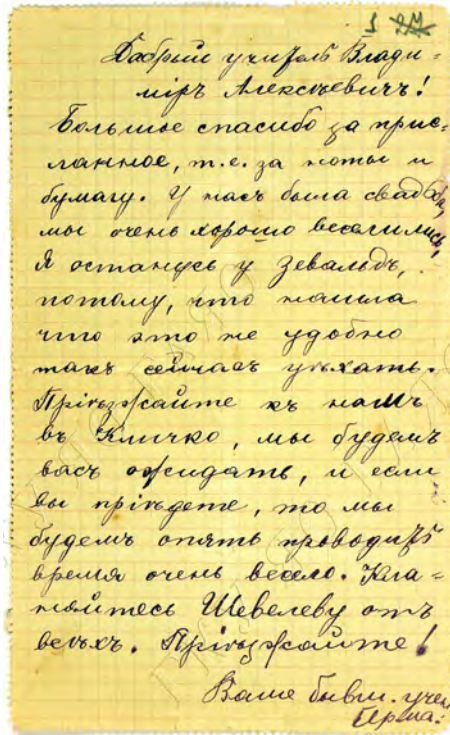 Добрый учитель Влади=
міръ Алексѣевичъ!
Большое спасибо за прис=
ланное, т.е. за ноты и
бумагу. У насъ была свадьба,
мы очень хорошо веселились,
Я останусь у Зевальдъ,
потому, что нашла
что это не удобно
такъ сейчасъ уѣхать.
Пріѣзжайте къ намъ
въ Кличко, мы будемъ
васъ ожидать, и если
вы пріѣдете, то мы
будемъ опять проводить
время очень весело. Кла=
няйтесь Шевелеву отъ
всѣхъ. Пріѣзжайте!
Ваша бывш. учен.